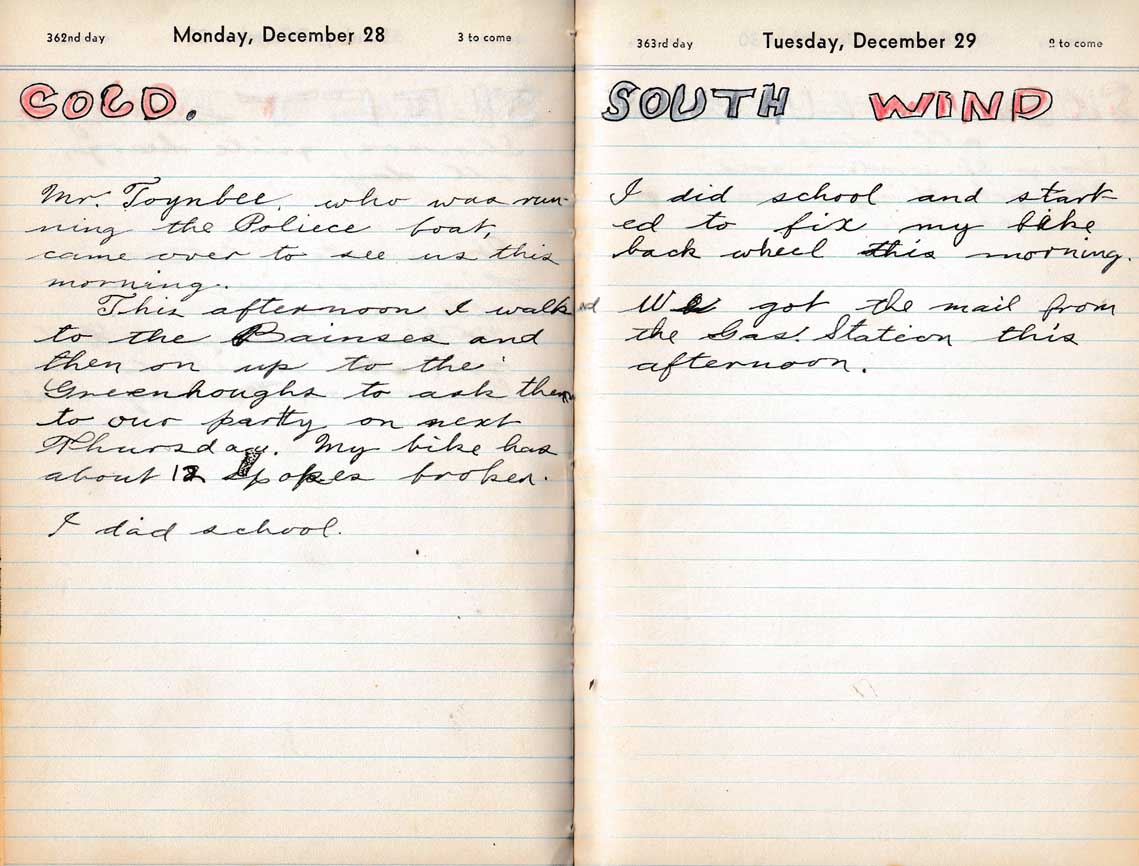 362nd day Monday, December 28 3 to come
COLD.
Mr. Toynbee, who was run-
ning the Poliece boat,
came over to see us this
morning.
This afternoon I walk
to the Bainses and
then on up to the
Greenhoughs to ask them
to our party on next
Thursday. My bike has
about 12 spokes broken.
I did school.
363rd day Tuesday, December 29 2 to come
SOUTH WIND
I did school and start-
ed to fix my bike
back wheel this morning.
We got the mail from
the Gas. Station this
afternoon.